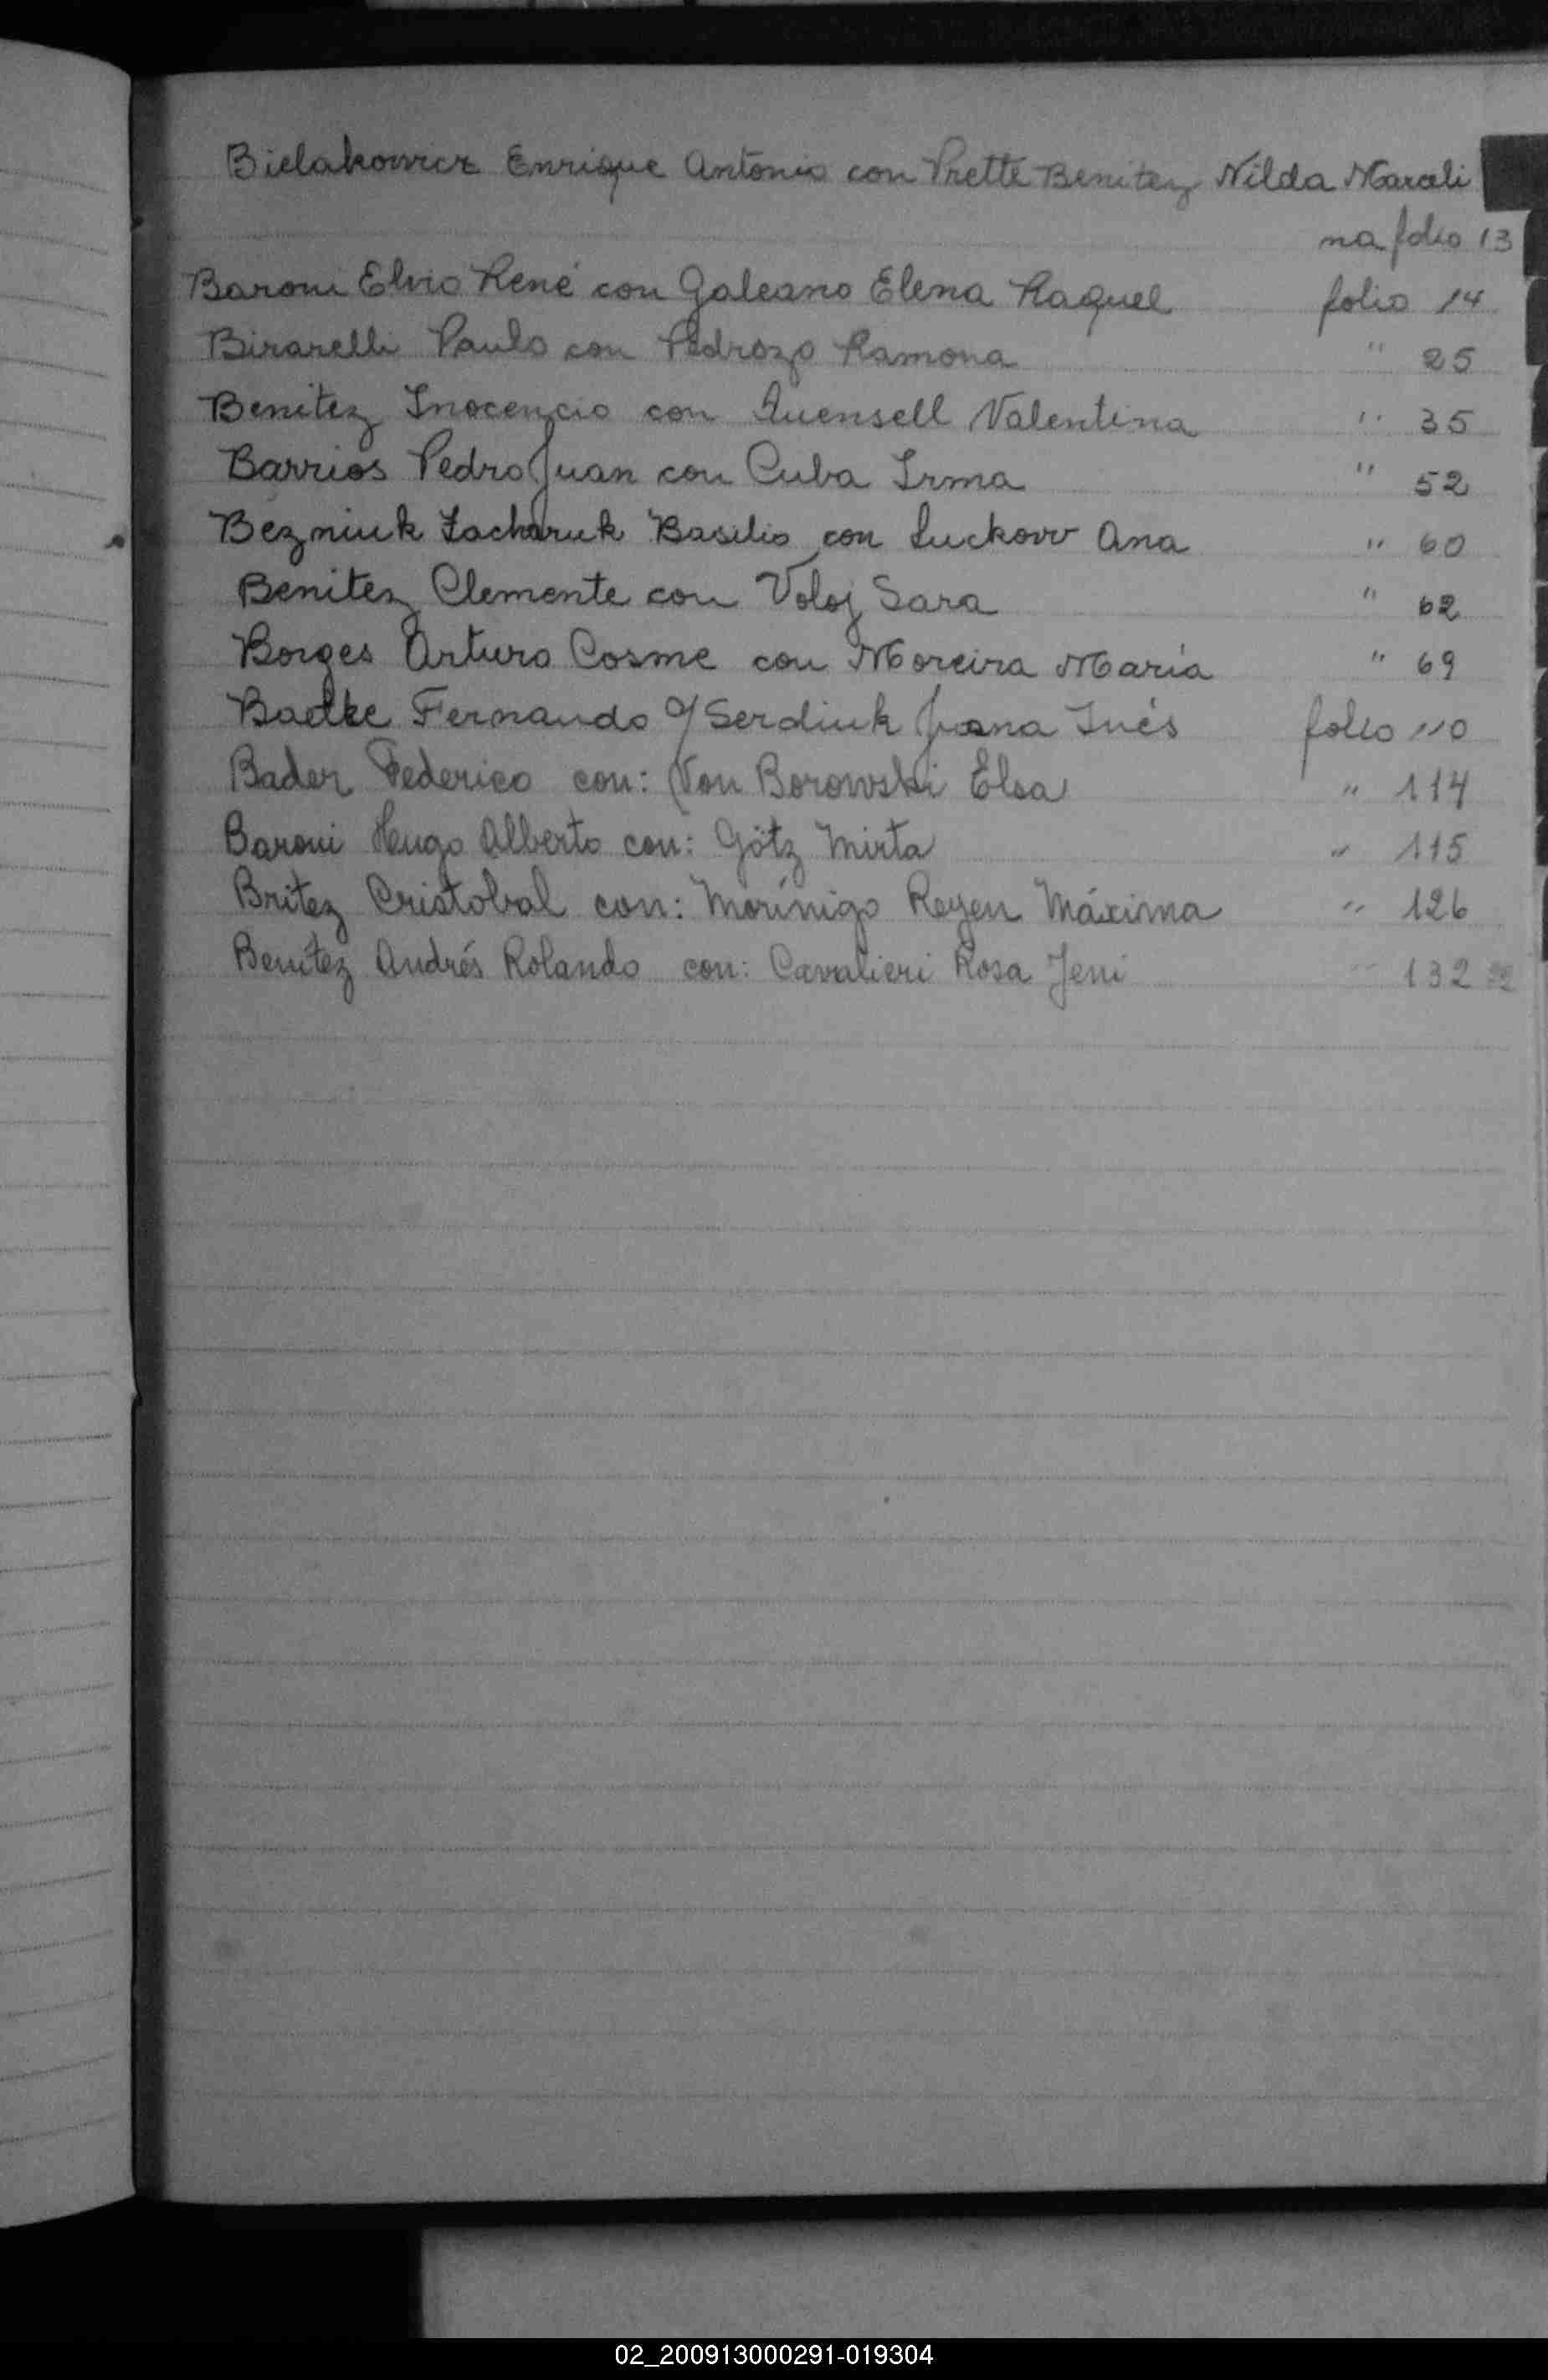 Bielakowicz Enrique Antonio con Prette Benitez Nilda Marceli
na folio 13
Baroni Elvio René con Galeano Elena Raquel folio 14
Birarelli Paulo con Pedrozo Ramona " 25
Benitez Inocencio con Quensell Valentina " 35
Barrios Pedro Juan con Cuba Irma " 52
Bezniuk Zacharuk Basilio con Luckow Ana " 60
Benitez Clemente con Voloj Sara " 62
Borges Arturo Cosme con Moreira María " 69
Badke Fernando c/ Serdiuk Juana Inés folio 110
Bader Federico con: Von Borowski Elsa " 114
Baroni Hugo Alberto con: Götz Mirta " 115
Britez Cristobal con: Morínigo Reyen Máxima " 126
Benítez Andrés Rolando con: Cavalieri Rosa Jeni " 132
02_200913000291-019304